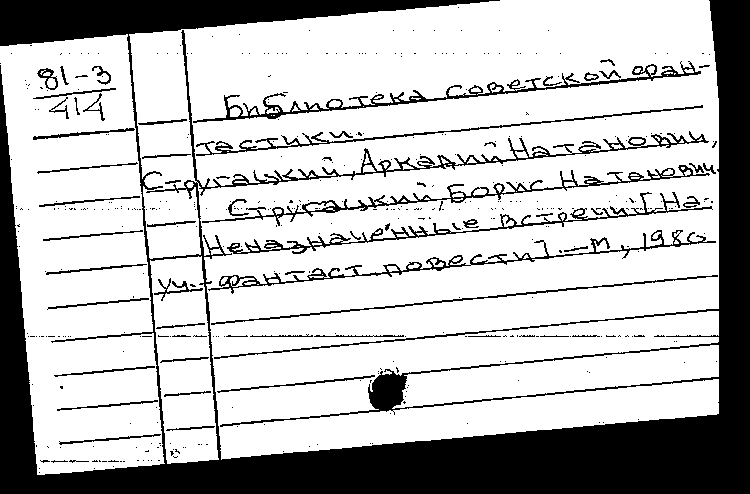 81-3
414
Библиотека советской фан-
тастики.
Стругацкий, Аркадий Натанович,
Стругацкий, Борис Натанович.
Неназначенные встречи: [На-
уч.-фантаст. повести]. — М., 1980